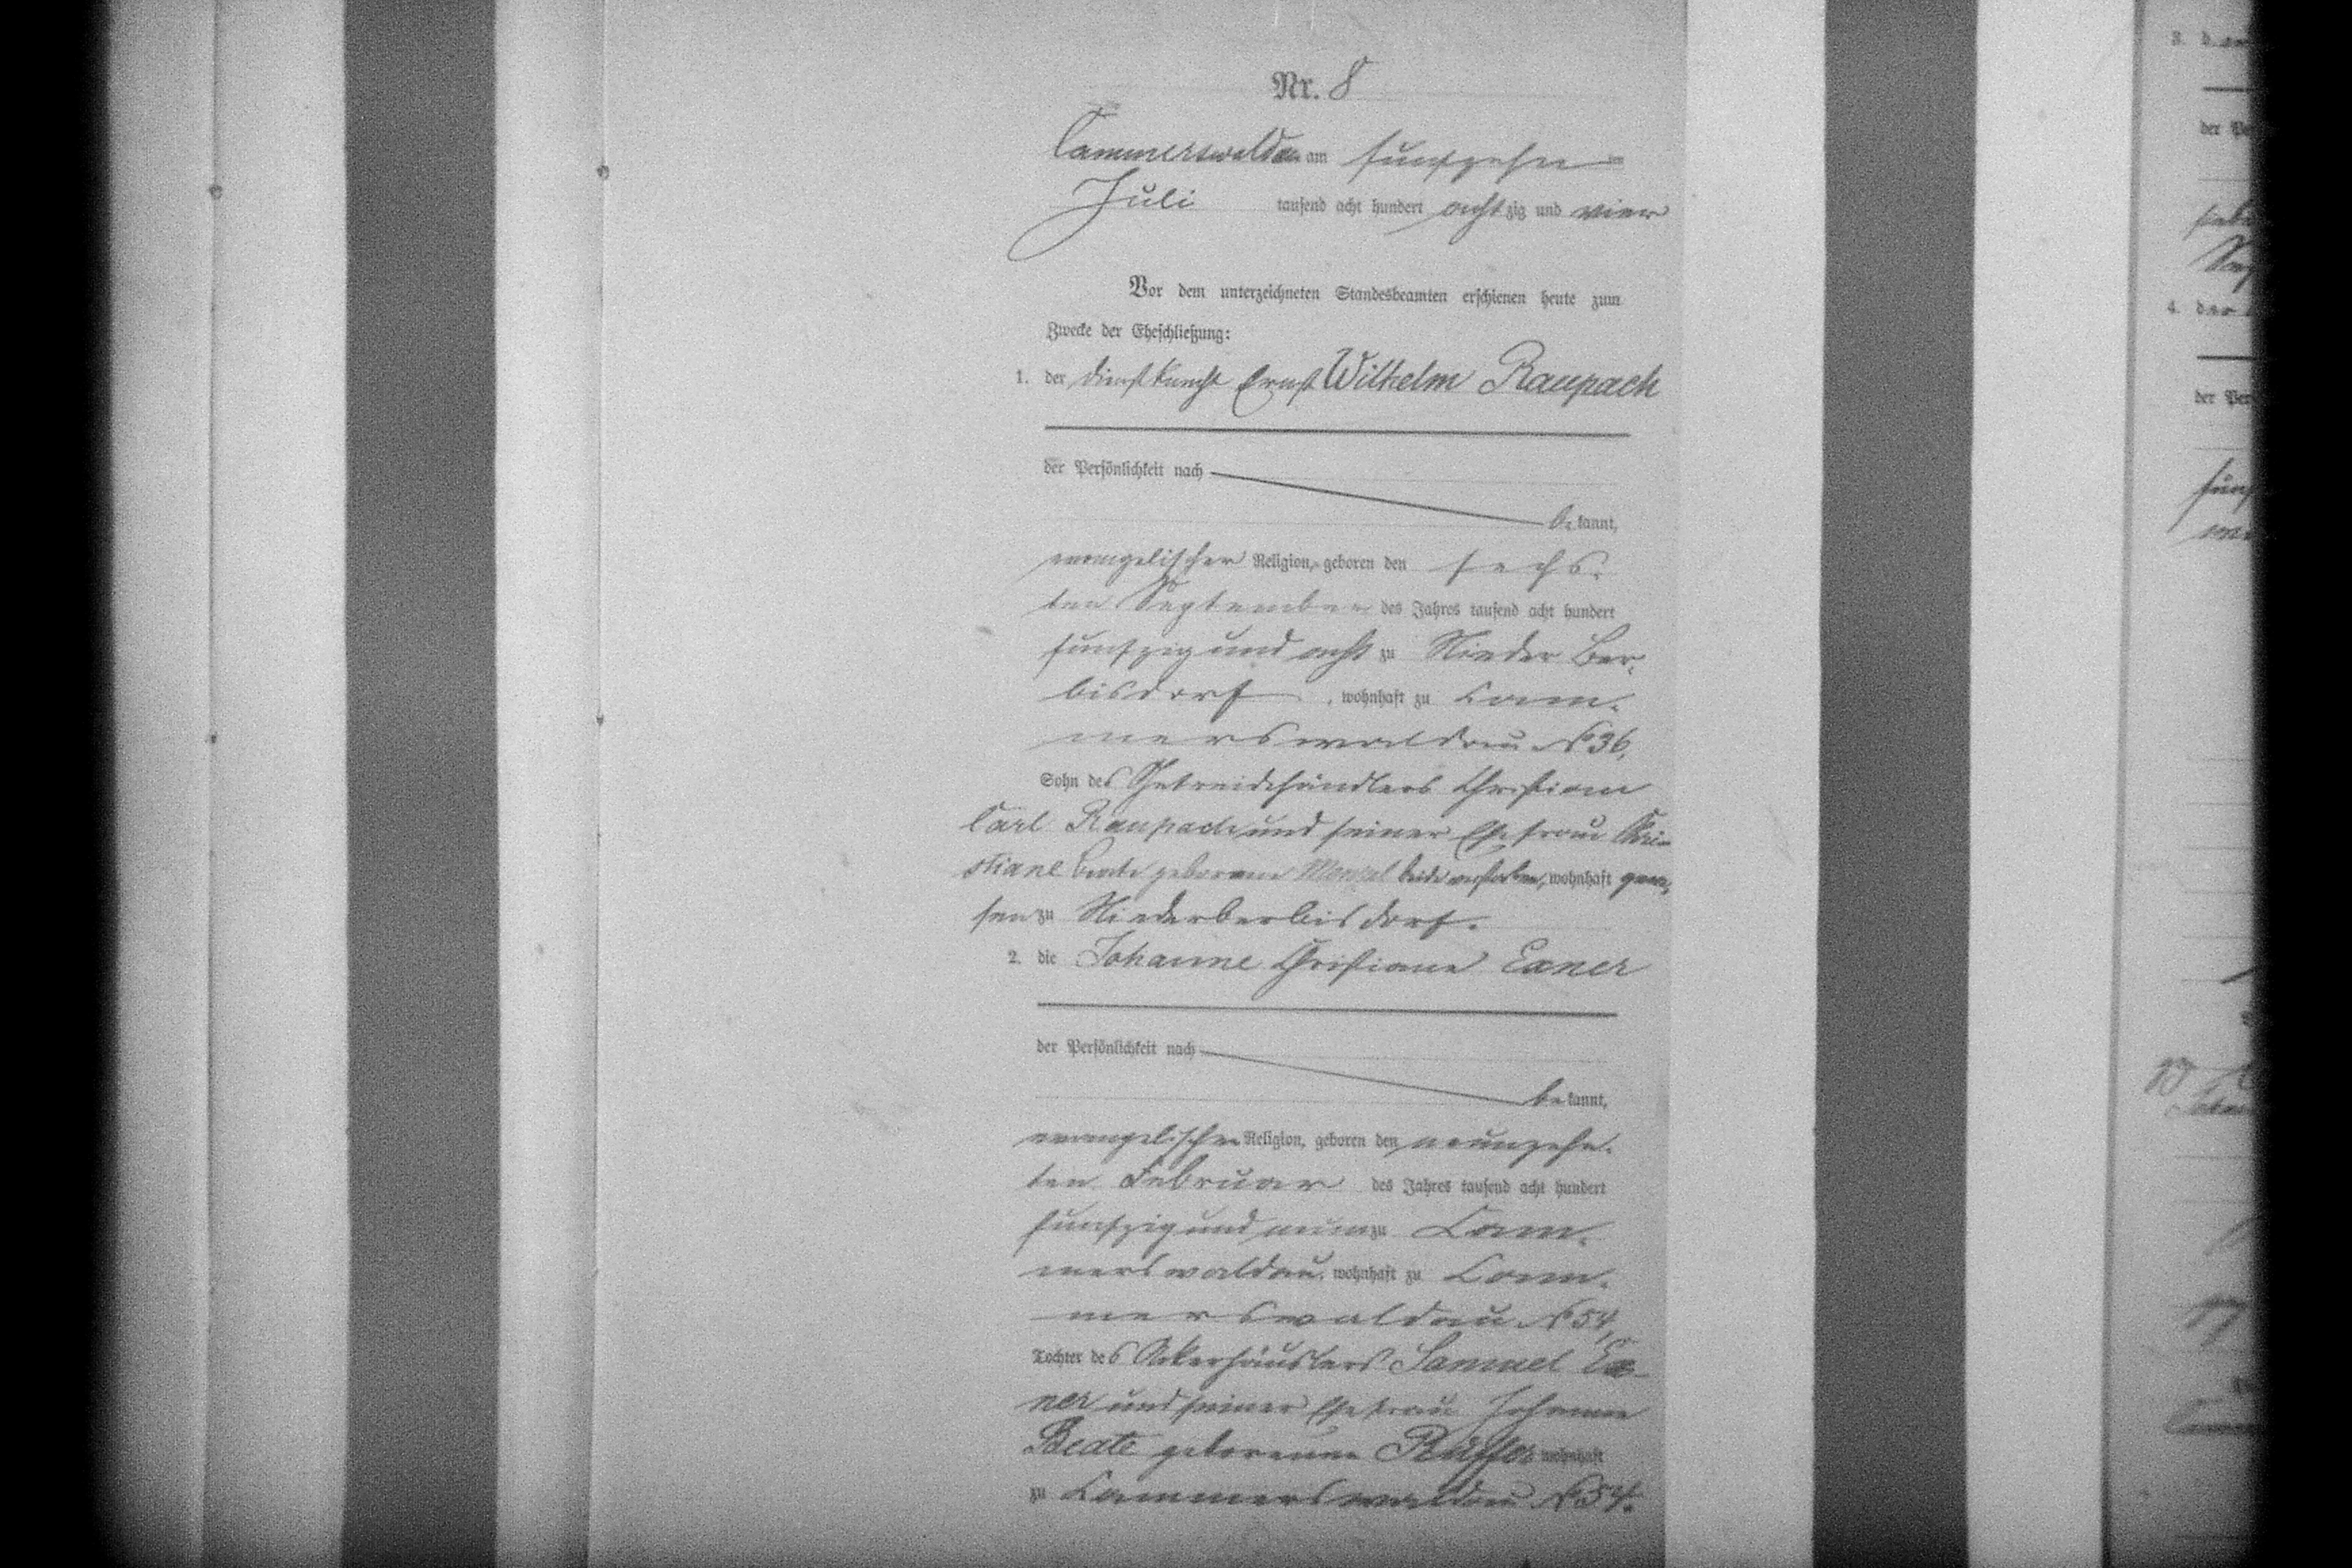 Nr. 8
Cammerswaldau am fünfzehn
Juli tausend acht hundert achtzig und vier
Vor dem unterzeichneten Standesbeamten erschienen heute zum
Zwecke der Eheschließung:
1. der Dienstknecht Ernst Wilhelm Raupach
der Persönlichkeit nach
bekannt,
evangelischer Religion, geboren den sechs-
ten September des Jahres tausend acht hundert
fünfzig und acht zu Nieder Ber-
bisdorf, wohnhaft zu Cam-
merswaldau No 36,
Sohn des Getreidehändlers Christian
Carl Raupach und seiner Ehefrau Chri-
stiane Beate geborene Menzel beide verstorben, wohnhaft gewe-
sen zu Niederberbisdorf.
2. die Johanne Christiane Exner
der Persönlichkeit nach
bekannt,
evangelischer Religion, geboren den neunzehn-
ten Februar des Jahres tausend acht hundert
fünfzig und neun zu Cam-
merswaldau, wohnhaft zu Cam-
merswaldau No 54,
Tochter des Ackerhäuslers Samuel Ex-
ner und seiner Ehefrau Johanne
Beate geborenen wohnhaft
zu Cammerswaldau No 54.
3. der
der Pe
4. der
der Per